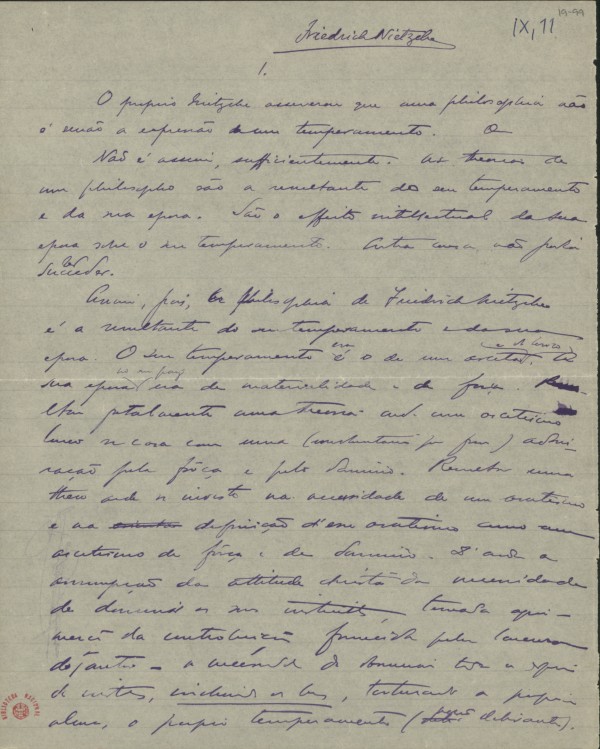 19-99
IX, 11
Friedrich Nietzsche
1.
O proprio Nietzsche asseverou que uma philosophia não
é senão a expressão de um temperamento. O
Não é assim, sufficientemente. As theorias de
um philosopho são a resultante do seu temperamento
e da sua epoca. São o effeito intellectual da sua
epoca sobre o seu temperamento. Outra cousa não podia
succeder.
Assim, pois, a philosophia de Friedrich Nietzsche
é a resultante do seu temperamento e da sua
epoca. O seu temperamento era o de um asceta
sua epoca era de materialidade e de força.
fatalmente uma theoria onde um ascetismo
louco se casa com uma (involuntaria que fosse) admi-
ração pela força e pelo dominio. Resulta uma
theoria onde se insiste na necessidade de um ascetismo
e na definição d'esse ascetismo como um
ascetismo de força e de dominio. D'onde a
assumpção da attitude christã da necessidade
de dominar os seus instinctos, tornada aqui
mercê da contribuição fornecida pela loucura
do autor a necessidade de dominar toda a especie
de instinctos, incluindo os bons, torturando a propria
alma, o proprio temperamento (noção delirante).
BIBLIOTECA NACIONAL